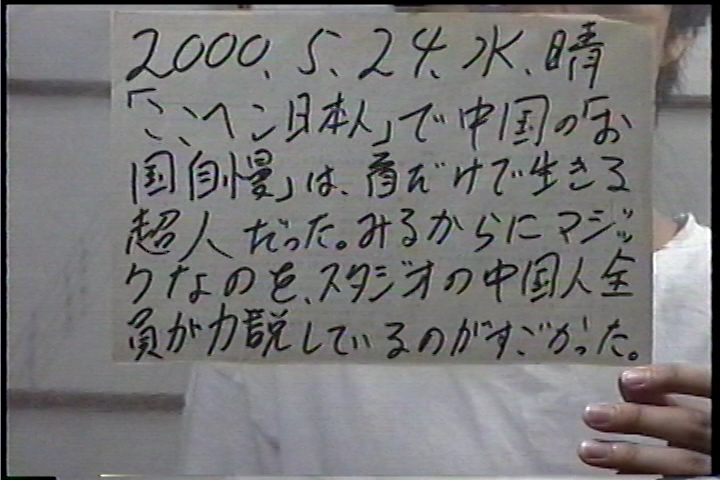 2000、5、24、水、晴
「ここヘン日本人」で中国の「お
国自慢」は、首だけで生きる
超人だった。みるからにマジッ
クなのを、スタジオの中国人全
員が力説しているのがすごかった。